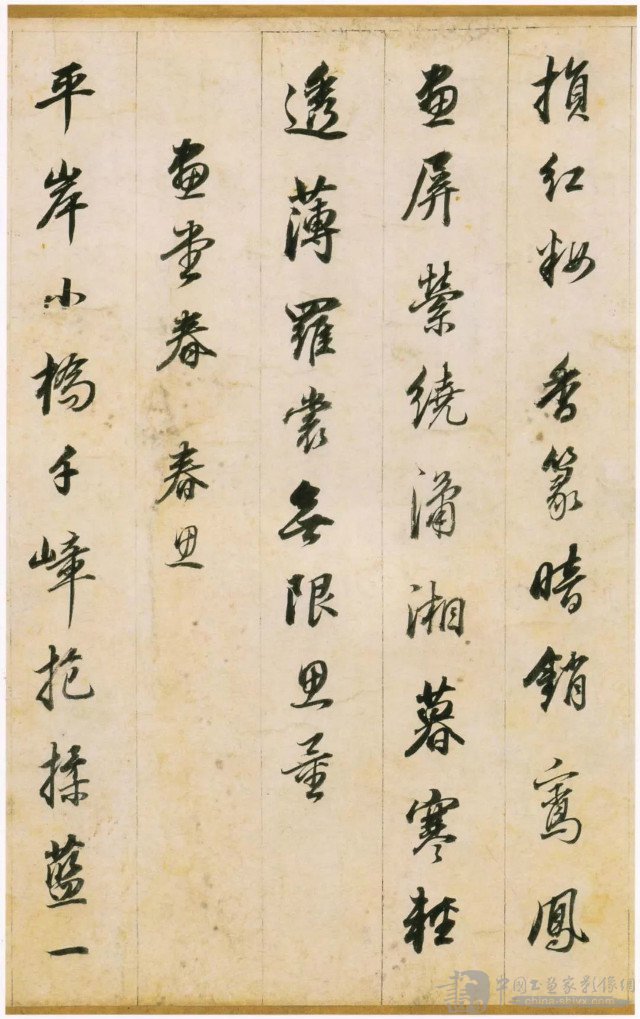 損紅粧 香篆暗銷鸞鳳
畫屏縈繞瀟湘暮寒輕
透薄羅裳無限思量
畫堂春 春思
平岸小橋千嶂抱揉藍一
中國书画家影像網